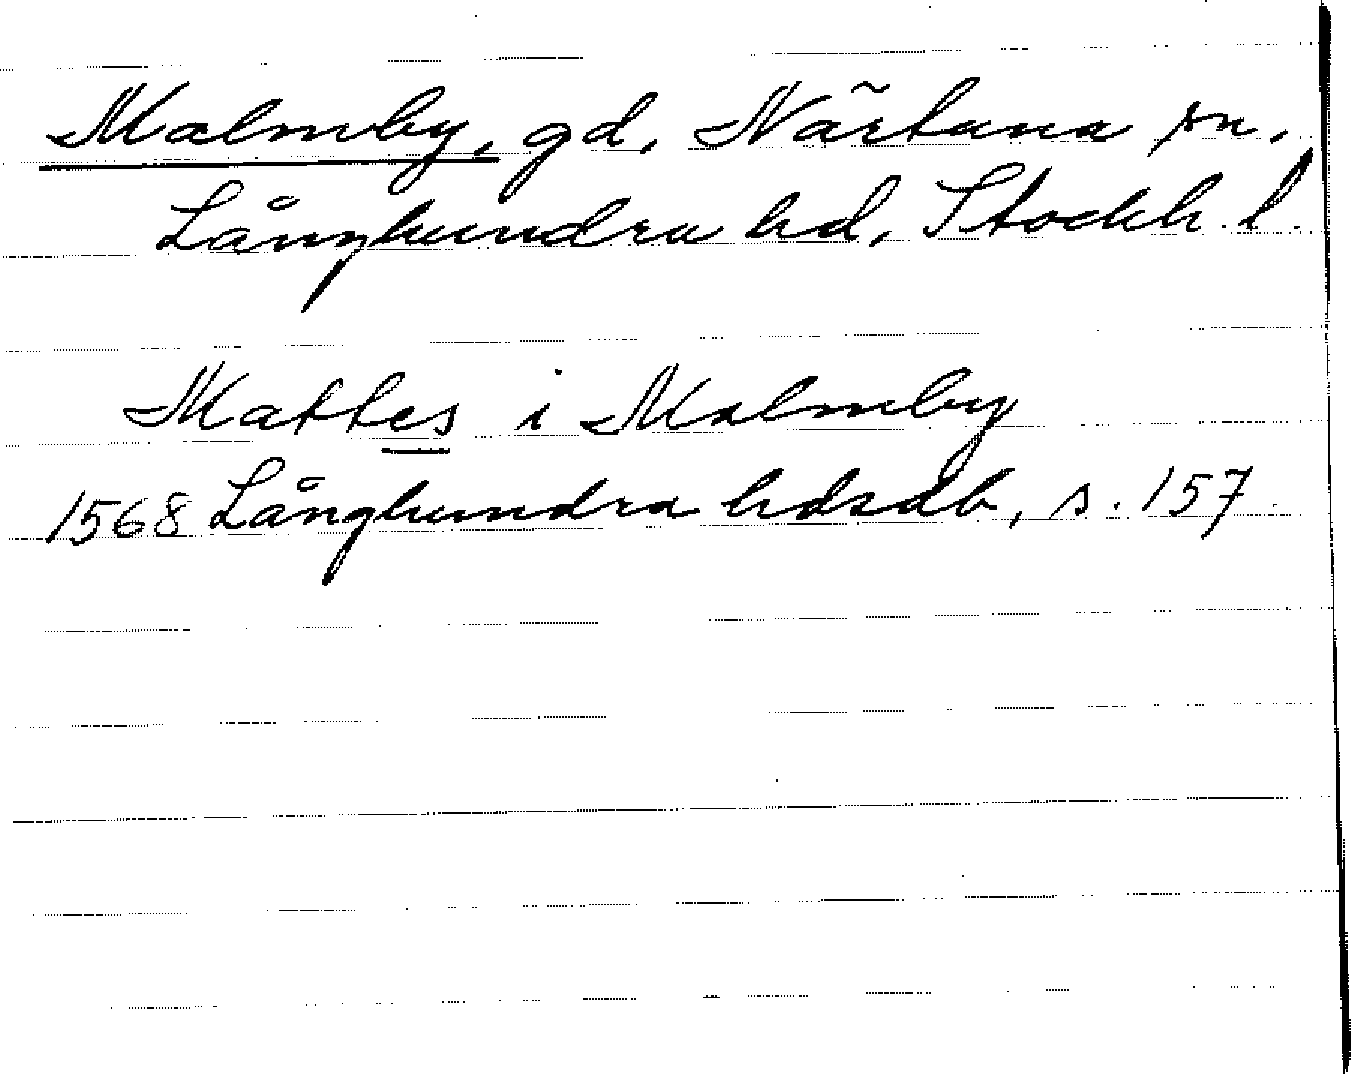 Malmby, gd, Närtuna sn,
Långhundra hd, Stockh. l.
Mattes i Malmby
1568 Långhundra hdsdb, s. 157